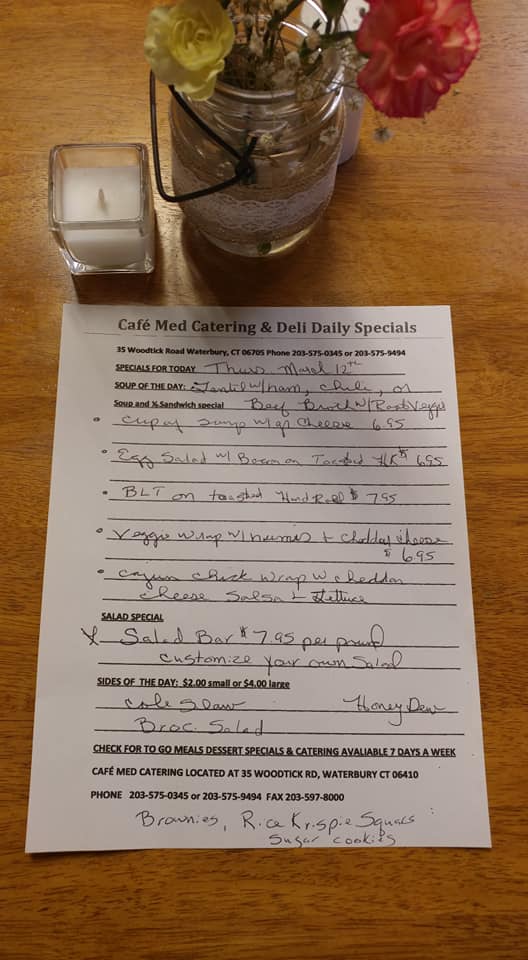 Café Med Catering & Deli Daily Specials
35 Woodtick Road Waterbury, CT 06705 Phone 203-575-0345 or 203-575-9494
SPECIALS FOR TODAY Thurs March 12th
SOUP OF THE DAY: Lentil w/ham, chili, or
Soup and ½ Sandwich special Beef Broth w/Root Veggie
cup of soup w/ gr cheese 6.95
Egg Salad w/ Bacon on Toasted HR $ 6.95
BLT on toasted Hard Roll $ 7.95
Veggie wrap w/ humus + cheddar cheese
$ 6.95
cajun chick wrap w cheddar
cheese salsa + lettuce
SALAD SPECIAL
Salad Bar $ 7.95 per pound
customize your own Salad
SIDES OF THE DAY: $2.00 small or $4.00 large
cole slaw Honey Dew
Broc. Salad
CHECK FOR TO GO MEALS DESSERT SPECIALS & CATERING AVALIABLE 7 DAYS A WEEK
CAFÉ MED CATERING LOCATED AT 35 WOODTICK RD, WATERBURY CT 06410
PHONE 203-575-0345 or 203-575-9494 FAX 203-597-8000
Brownies, Rice Krispie Squars
Sugar cookies